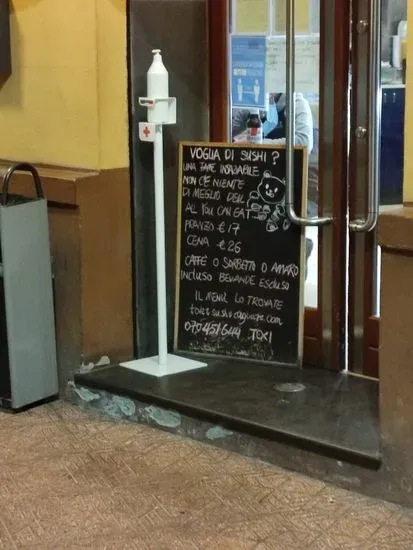 VOGLIA DI SUSHI?
UNA FAME INSAZIABILE
NON C'È NIENTE
DI MEGLIO DELL'
ALL YOU CAN EAT
PRANZO € 17
CENA € 26
CAFFÈ O SORBETTO O AMARO
INCLUSO BEVANDE ESCLUSO
IL MENÙ LO TROVATE
070451644 TOXI